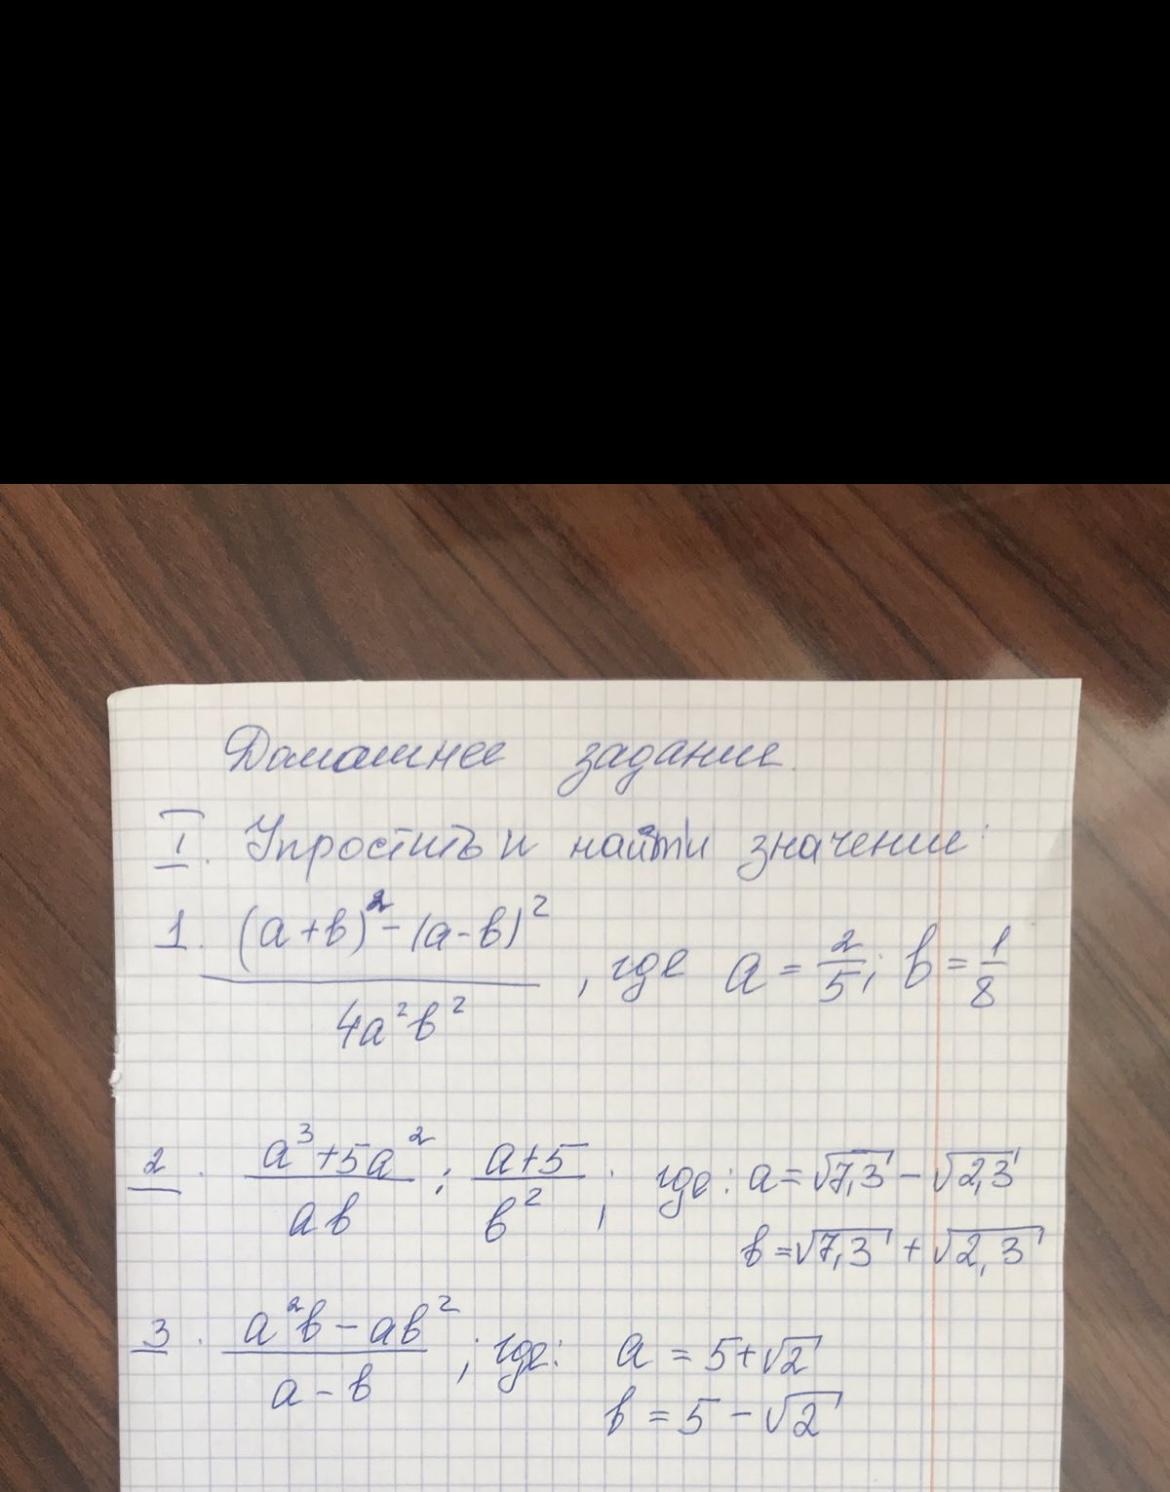 Домашнее задание.
I. Упростить и найти значение:
1. ((a+b)² - (a-b)²)/(4a²b²), где a = 2/5; b = 1/8
2. (a³+5a²)/(ab) : (a+5)/(b²); где: a = √7,3 - √2,3
b = √7,3 + √2,3
3. (a²b - ab²)/(a-b); где: a = 5+√2
b = 5 - √2